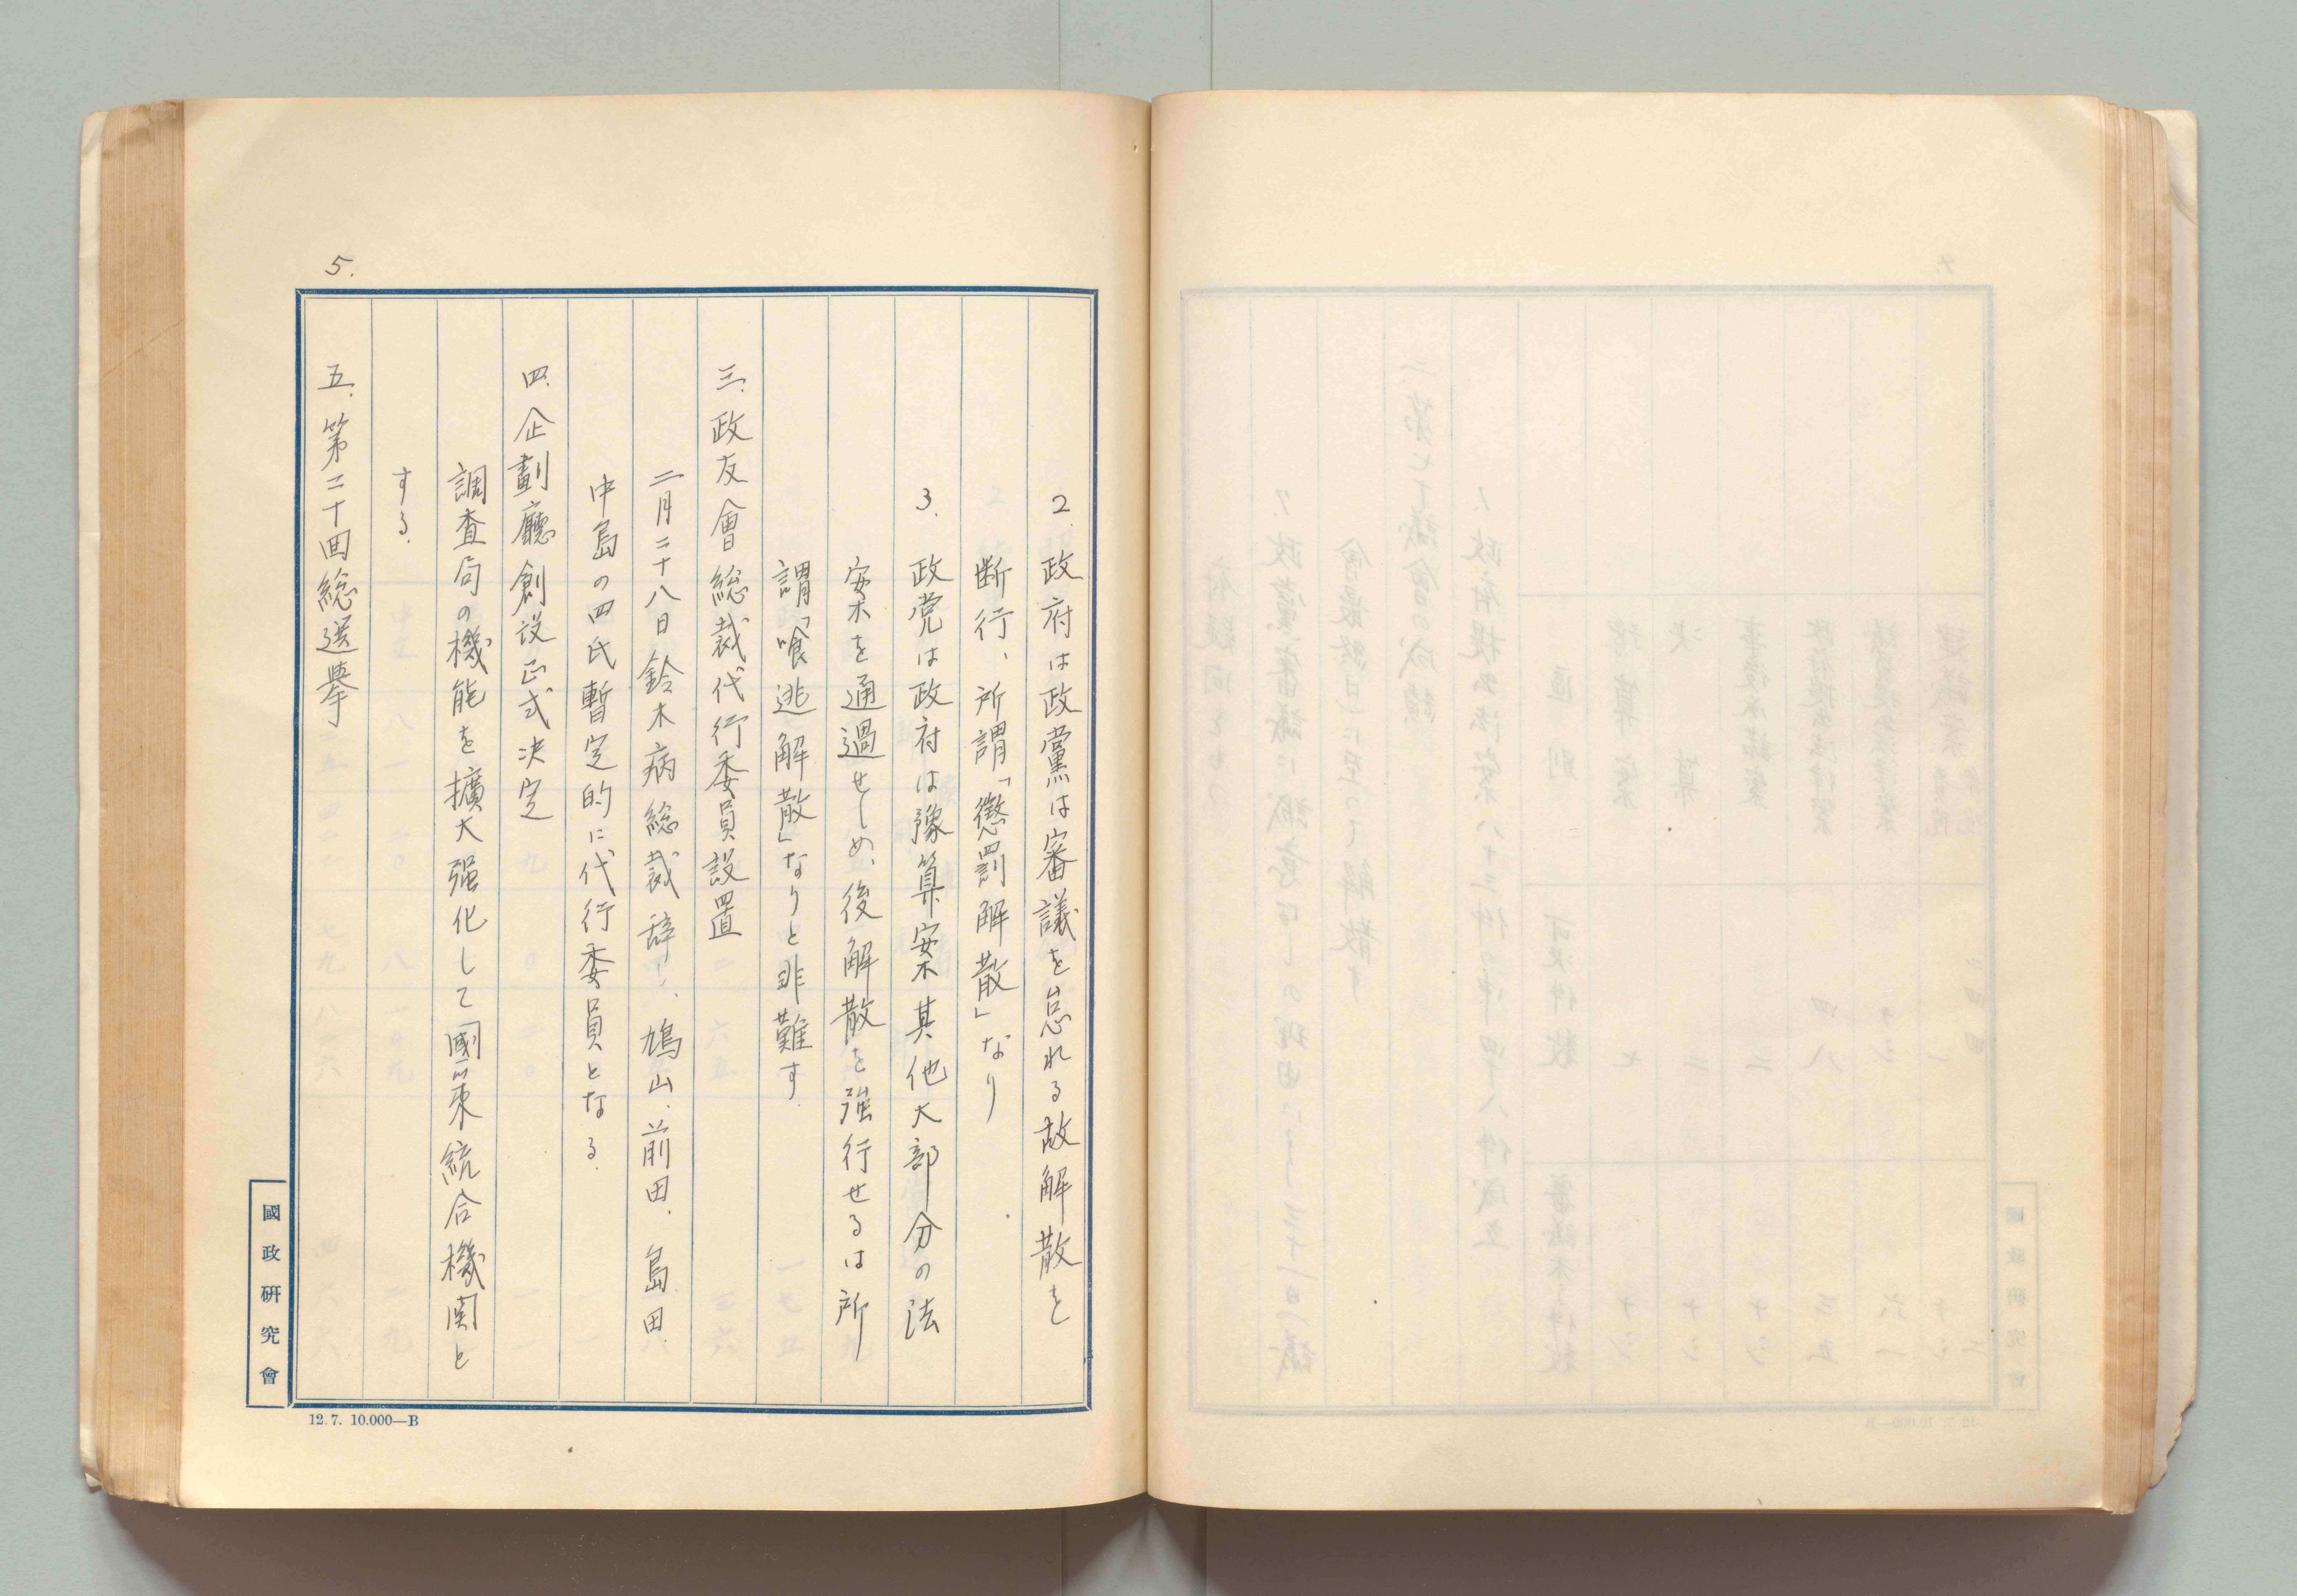 5.
2. 政府は政黨は審議を怠れる故解散を
断行、所謂「懲罰解散」なり
3. 政党は政府は豫算案其他大部分の法
案を通過せしめ、後解散を強行せるは所
謂「喰逃解散」なりと非難す.
三. 政友會総裁代行委員設置
二月二十八日鈴木病総裁辞し、鳩山、前田、島田
中島の四氏暫定的に代行委員となる.
四. 企劃廳創設正式決定
調査局の機能を擴大强化して國策統合機関と
する.
五. 第二十回総選挙
國政研究會
12.7. 10.000—B